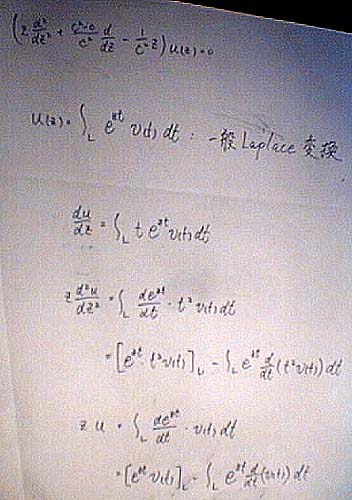 (z d²/dz² + (c²-c)/c² d/dz - 1/c² z) u(z) = 0
u(z) = ∫_L e^{zt} v(t) dt : 一般 Laplace 変換
du/dz = ∫_L t e^{zt} v(t) dt
z d²u/dz² = ∫_L de^{zt}/dt · t² v(t) dt
= [e^{zt} · t² v(t)]_L - ∫_L e^{zt} d/dt (t² v(t)) dt
z u = ∫_L de^{zt}/dt · v(t) dt
= [e^{zt} v(t)]_L - ∫_L e^{zt} d/dt (v(t)) dt